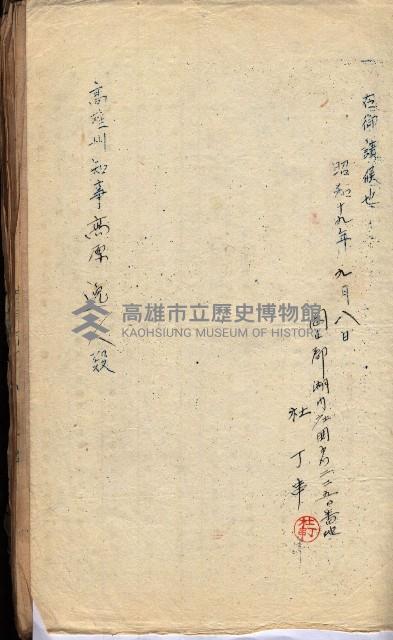 右御請候也
昭和十九年 九月八日
岡山郡湖内庄圍子內二二五〇番地
杜 丁 車
高雄州知事高原逸人殿
高雄市立歷史博物館
KAOHSIUNG MUSEUM OF HISTORY